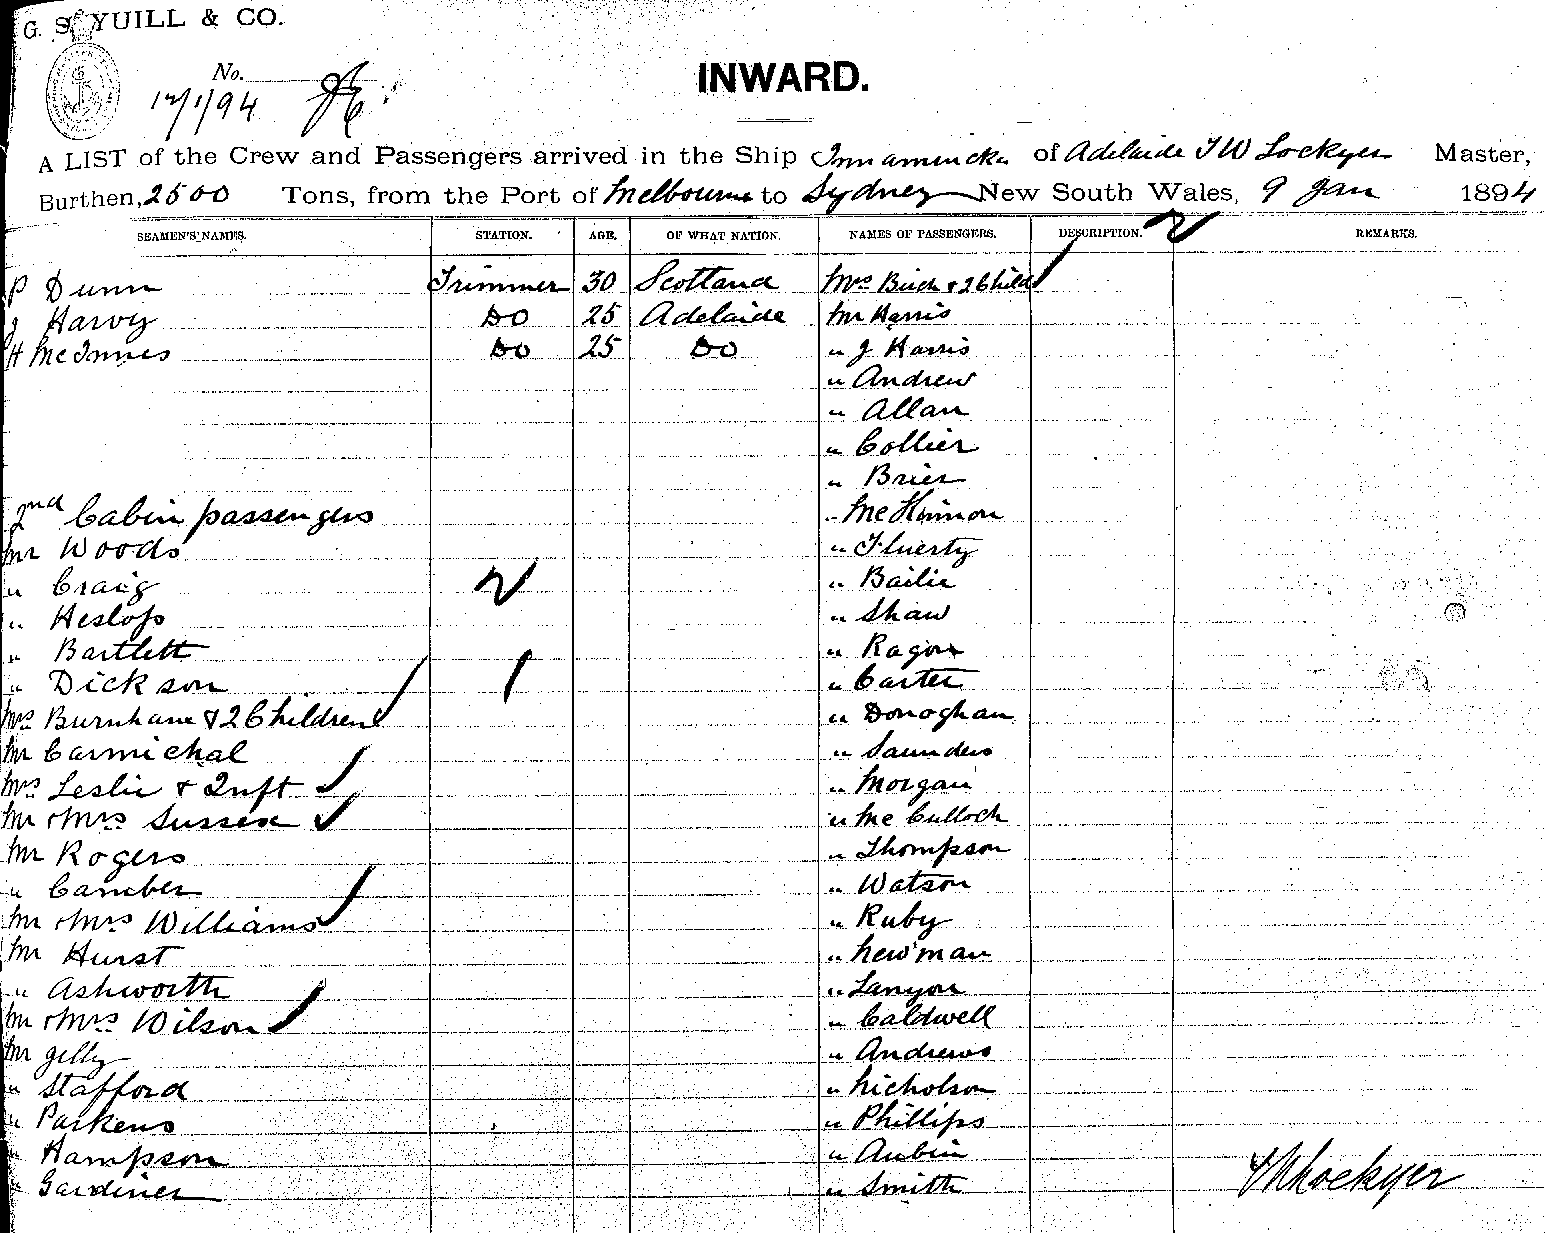 G. S. YUILL & CO.
No.
12/1/94
INWARD.
A LIST of the Crew and Passengers arrived in the Ship Innamincka of Adelaide T W Lockyer Master,
Burthen, 2500 Tons, from the Port of Melbourne to Sydney New South Wales, 9 Jan 1894
SEAMEN'S NAMES. STATION. AGE. OF WHAT NATION. NAMES OF PASSENGERS. DESCRIPTION. REMARKS.
P Dunn Trimmer 30 Scotland Mrs Birch & 2 Child
J Harvy Do 25 Adelaide Mr Harris
H McInnes Do 25 Do " J Harris
" Andrew
" Allan
" Collier
" Brier
2nd Cabin passengers " McKinnon
Mr Woods " Fluerty
" Craig " Bailie
" Heslop " Shaw
" Bartlett " Ragon
" Dickson " Carter
Mrs Burnhane & 2 Children " Donoghan
Mr Carmichal " Saunders
Mrs Leslie & Inft " Morgan
Mr & Mrs Sussex " McCulloch
Mr Rogers " Thompson
" Camber " Watson
Mr & Mrs Williams " Ruby
Mr Hurst " Newman
" Ashworth " Lanyon
Mr & Mrs Wilson " Caldwell
Mr Gelly " Andrews
" Stafford " Nicholson
" Parkens " Phillips
" Hampson " Aubin
" Gardiner " Smith
T W Lockyer